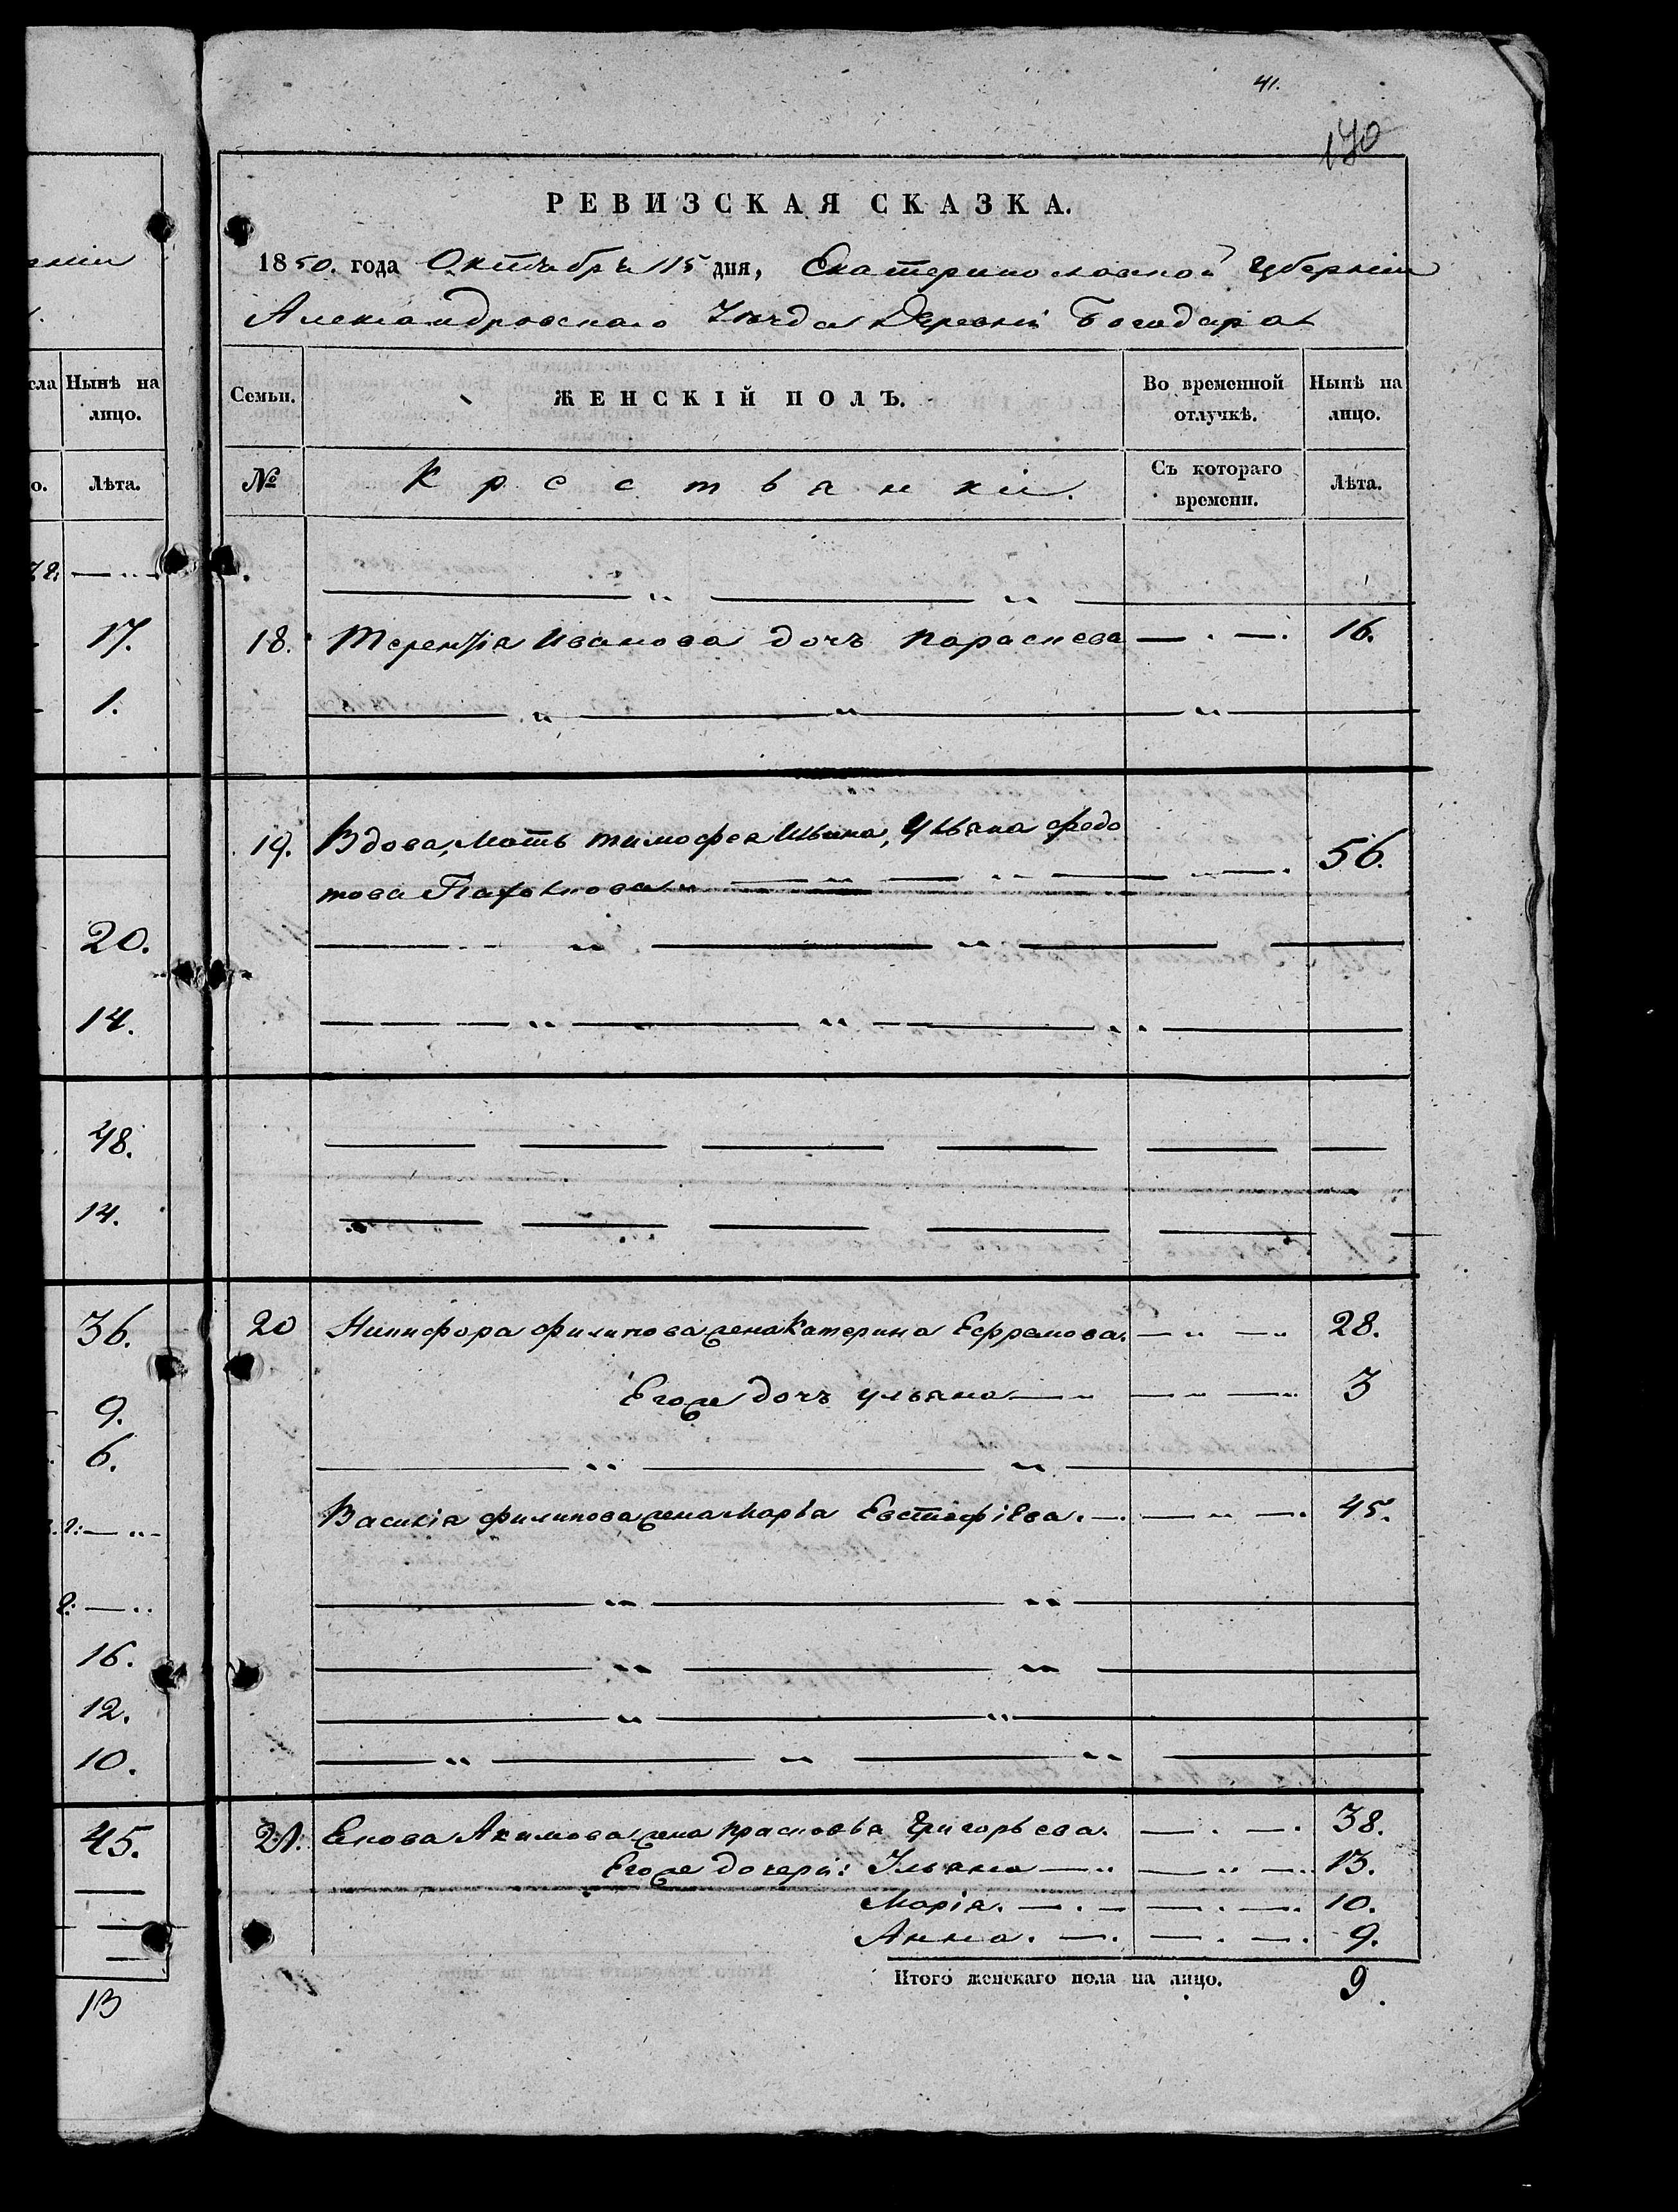 41.
170
РЕВИЗСКАЯ СКАЗКА.
1850. года Октября 15 дня, Екатеринославской Губерніи
Александровскаго Уѣзда Деревни Богодара
сла
Нынѣ на лицо.
Семьи.
ЖЕНСКІЙ ПОЛЪ.
Во временной отлучкѣ.
Нынѣ на лицо.
о.
Лѣта.
№
Крестьянки.
Съ котораго времени.
Лѣта.
17.
1.
20.
14.
48.
14.
36.
9.
6.
16.
12.
10.
45.
13
18. Терентія Иванова дочь Параскева 16.
19. Вдова, Мать Тимофея Ильина, Ульяна Федо
това Пахомова 56.
20 Никифора Филипова жена Катерина Ефремова. 28.
Его же дочь Ульяна 3
Василія Филипова жена Марья Евстафіева. 45.
21. Акимова жена Прасковья Григорьева. 38.
Его же дочери: Ульяна 13.
Марія. 10.
Анна. 9.
Итого женскаго пола на лицо. 9.